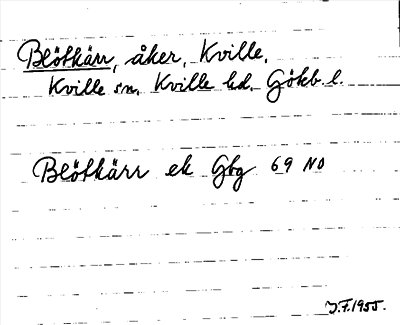 Blötkärr, åker, Kville,
Kville sn. Kville hd. Gökb. l.
Blötkärr ek Gbg 69 NO
J.F. 1955.